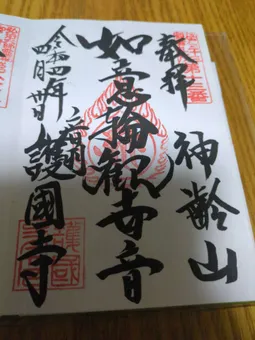 奉拝
神齢山
第十三番
如意輪観世音
令和四年
四月廿日
護國寺